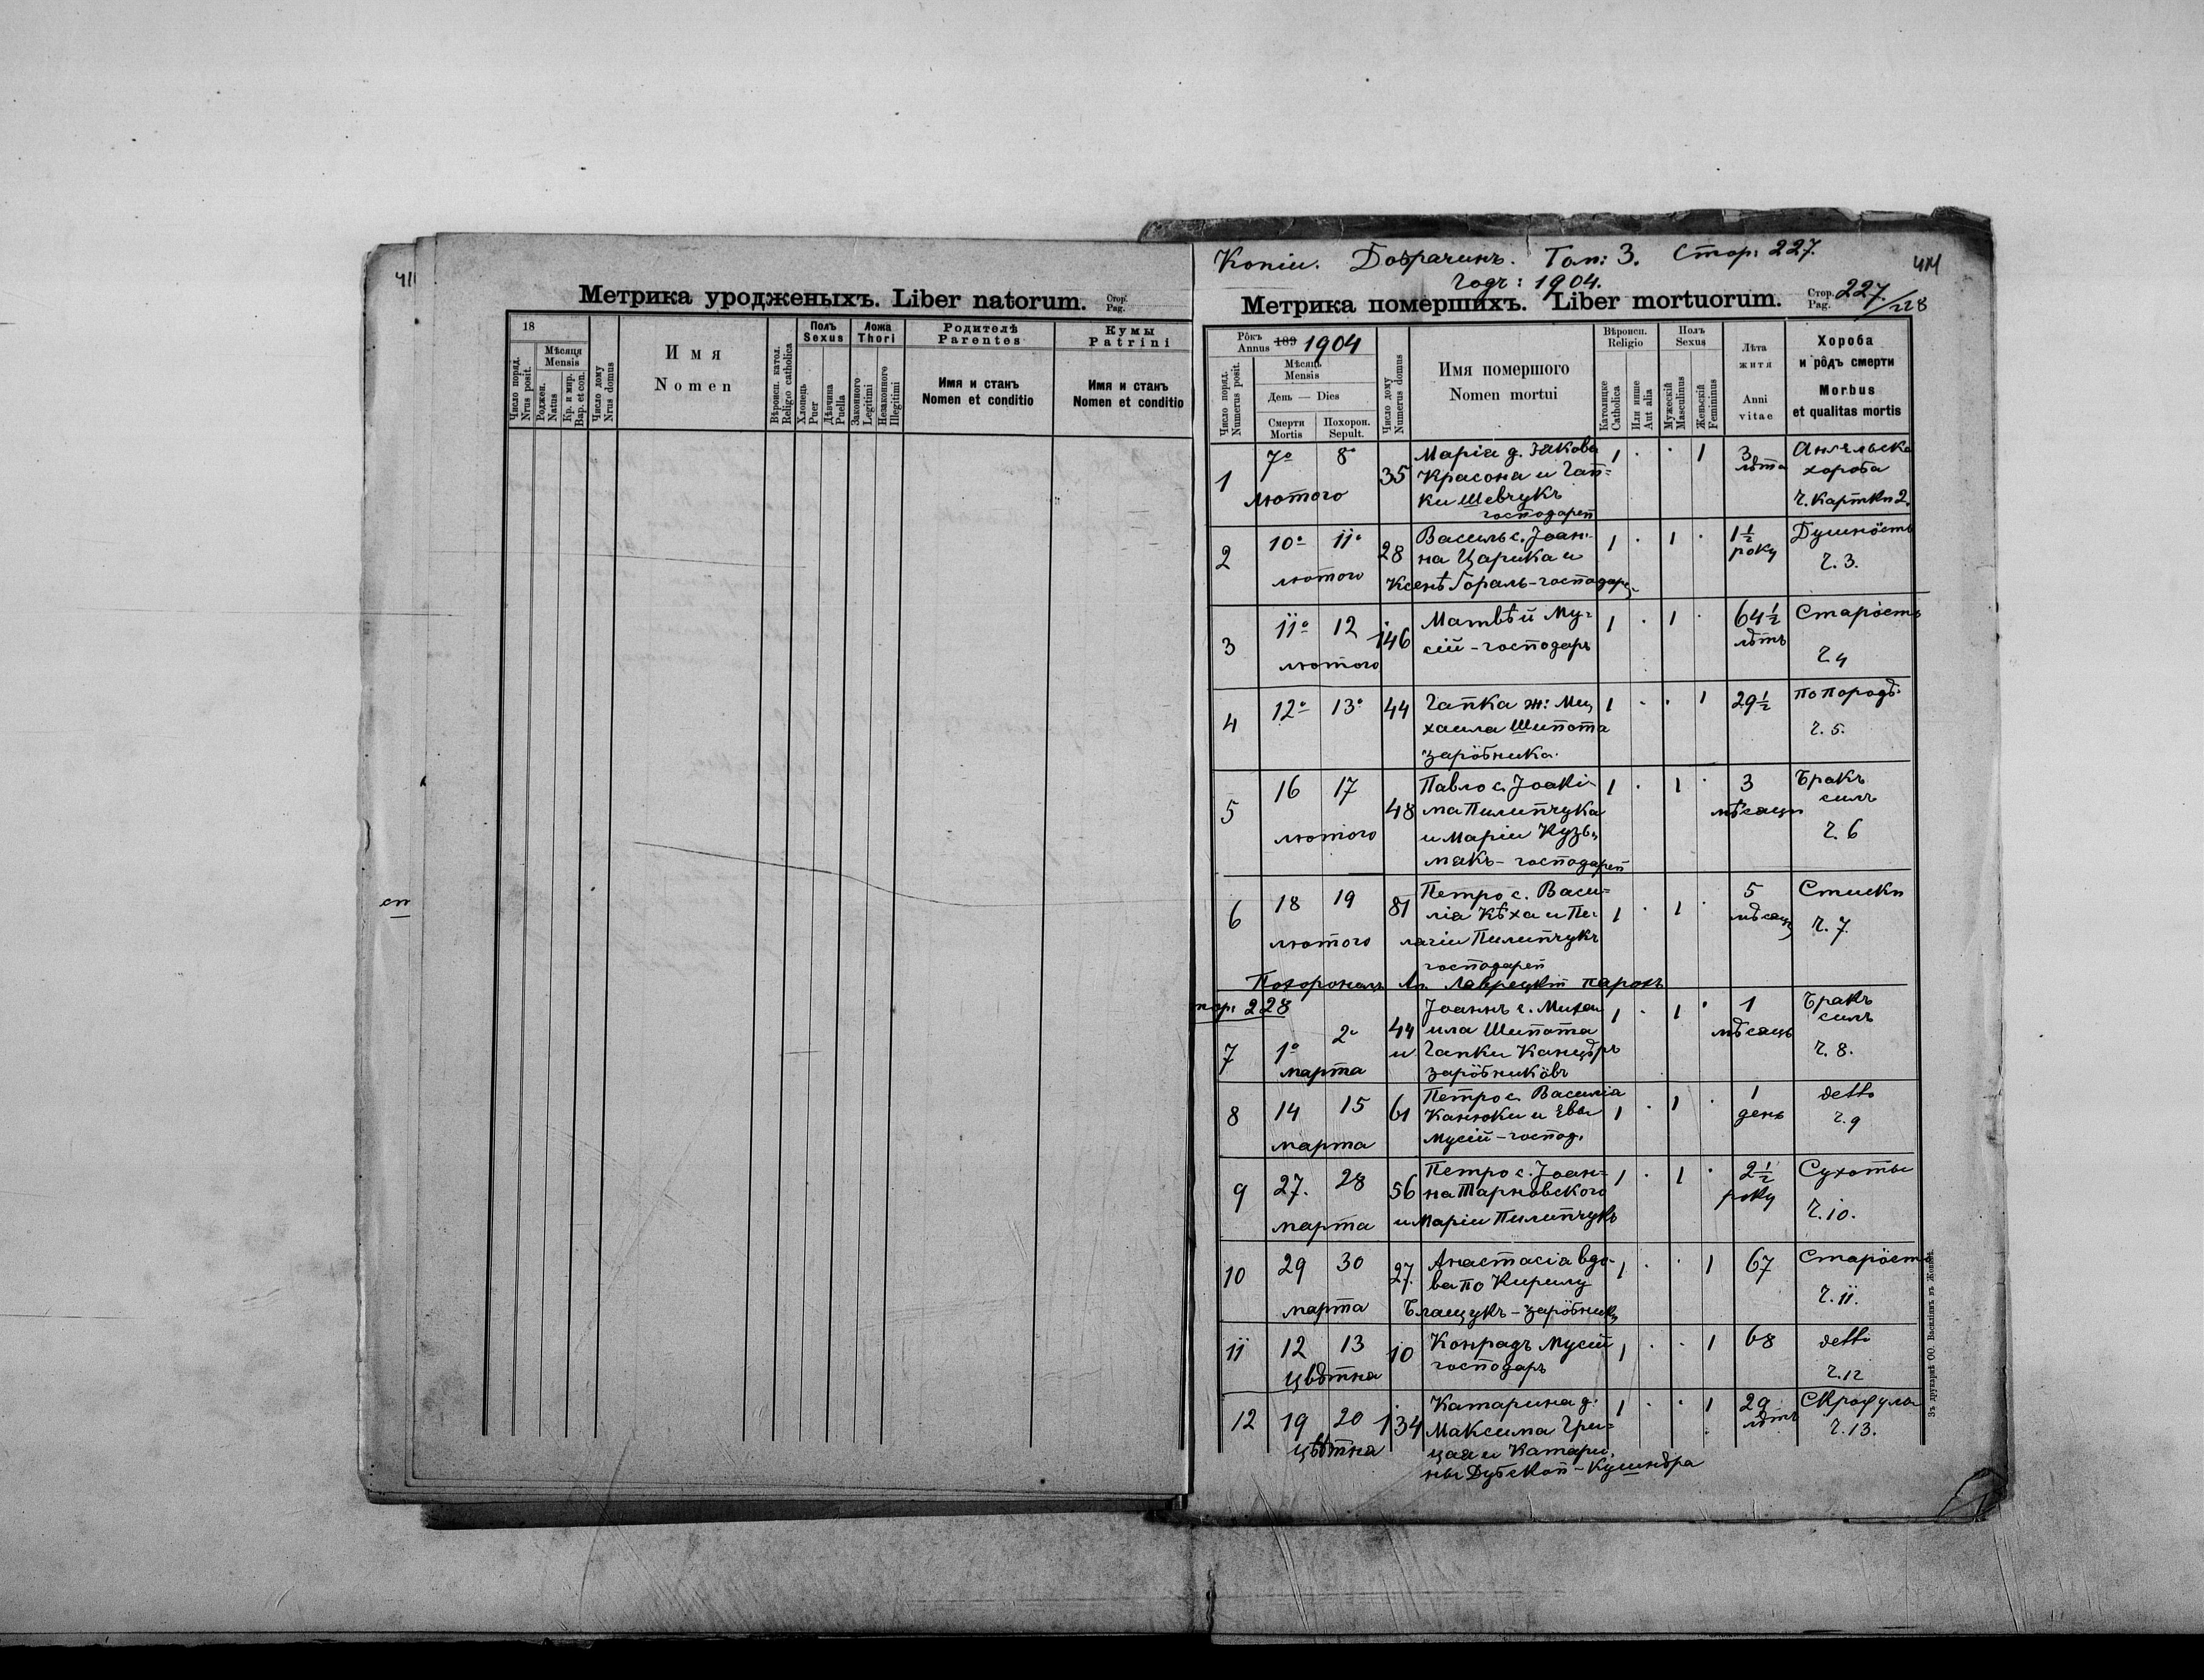 Метрика уродженыхъ. Liber natorum. Стор. Pag.
18
Число поряд. Nrus posit.
Мѣсяця Mensis
Роджен. Natus
Кр. и мир. Bap. et con.
Число дому Nrus domus
Имя
Nomen
Вѣроисп. катол. Religio catholica
Полъ Sexus
Хлопець Puer
Дѣвчина Puella
Ложа Thori
Законного Legitimi
Незаконного Illegitimi
Родителѣ
Parentes
Имя и станъ
Nomen et conditio
Кумы
Patrini
Имя и станъ
Nomen et conditio
сп
Копіи. Добрачинъ. Том: 3. Стор. 227.
Годъ: 1904.
414
Метрика помершихъ. Liber mortuorum. Стор. Pag. 227/228
Рôкъ Annus 189 1904
Число поряд. Numerus posit.
Мѣсяць Mensis
День — Dies
Смерти Mortis
Похорон. Sepult.
Число дому Numerus domus
Имя помершого
Nomen mortui
Вѣроисп. Religio
Католицке Catholica
Или инше Aut alia
Полъ Sexus
Мужескій Masculinus
Женьскій Femininus
Лѣта
житя
Anni
vitae
Хороба
и рôдъ смерти
Morbus
et qualitas mortis
1 7º 8º 35 Марія д. Якова 1 · · 1 3 Ангельска
Красона и Гап= лѣта хороба
лютого ки Шевчукъ
господарей Ч. Картки 2.
2 10º 11º 28 Василь с. Іоан- 1 · 1 · 1½ Душнôсть
на Царика и року
лютого Ксенѣ Гораль-господар. Ч. 3.
3 11º 12 146 Матвѣй Му- 1 · 1 · 64½ Старôсть
сій - господарь лѣтъ
лютого Ч. 4
4 12º 13º 44 Гапка ж: Ми, 1 · · 1 29½ по породѣ
хаила Шипота Ч. 5.
зарôбника.
5 16 17 48 Павло с. Іоакі- 1 · 1 · 3 Бракъ
ма Пилипчука мѣсяци силъ
лютого и Маріи Кузь, Ч. 6
макъ - господарей
6 18 19 81 Петро с. Васи= 1 · 1 · 5 Стиски
лія Кѣха и Пе- мѣсяц Ч. 7.
лютого лагіи Пилипчукъ
господарей
Похоронилъ Лаврецкій парохъ
стор: 228
7 1º 2º 44 Іоаннъ с. Михаи 1 · 1 · 1 Бракъ
ила Шипота мѣсяць силъ
и Гапки Канцѣръ Ч. 8.
марта зарôбникôвъ
8 14 15 61 Петро с. Василія 1 · 1 · 1 detto
Канюки и Евы день Ч. 9
марта Мусій - господ.
9 27. 28 56 Петро с. Іоан= 1 · 1 · 2½ Сухоты
на Тарновского року
марта и Маріи Пилипчукъ Ч. 10.
10 29 30 27. Анастасія вдо- 1 · · 1 67 Старôсть
ва по Кирилу
марта Блащукъ - зарôбниц Ч. 11.
11 12 13 10 Конрадъ Мусій 1 · · 1 68 detto
господарь
цвѣтня Ч. 12
12 19 20 134 Катарина д. 1 · · 1 29 Скрофулы
Максима Гри= лѣтъ Ч. 13.
цвѣтня цая и Катари,
ны Дубской - Кушнѣра
Зъ друкарнѣ ОО. Василіянъ въ Жовкві.